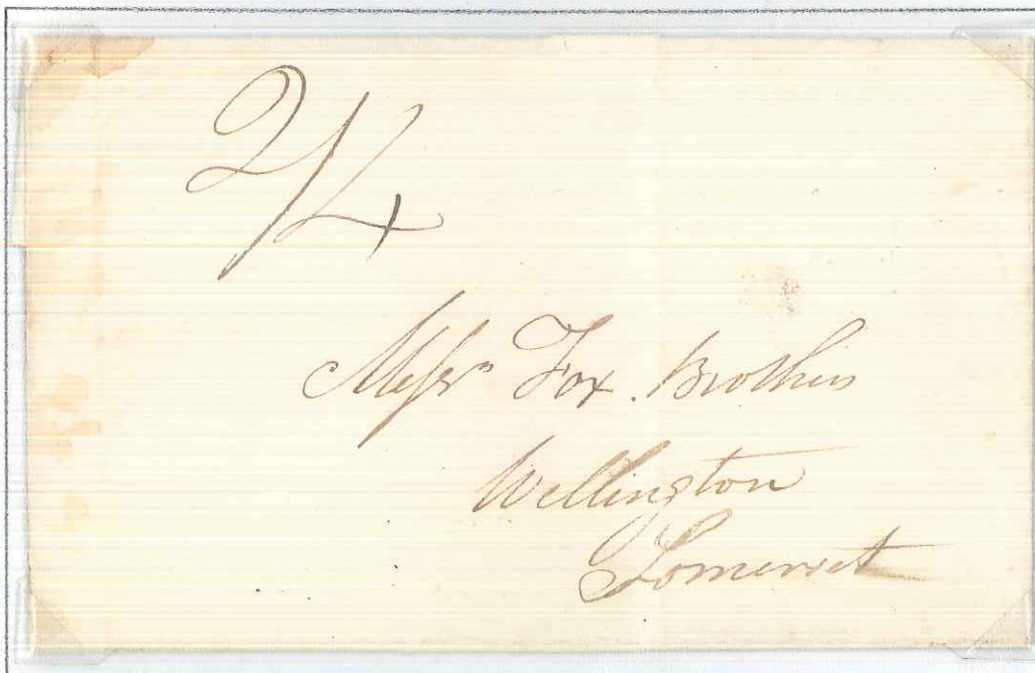 2/4
Messrs Fox Brothers
Wellington
Somerset